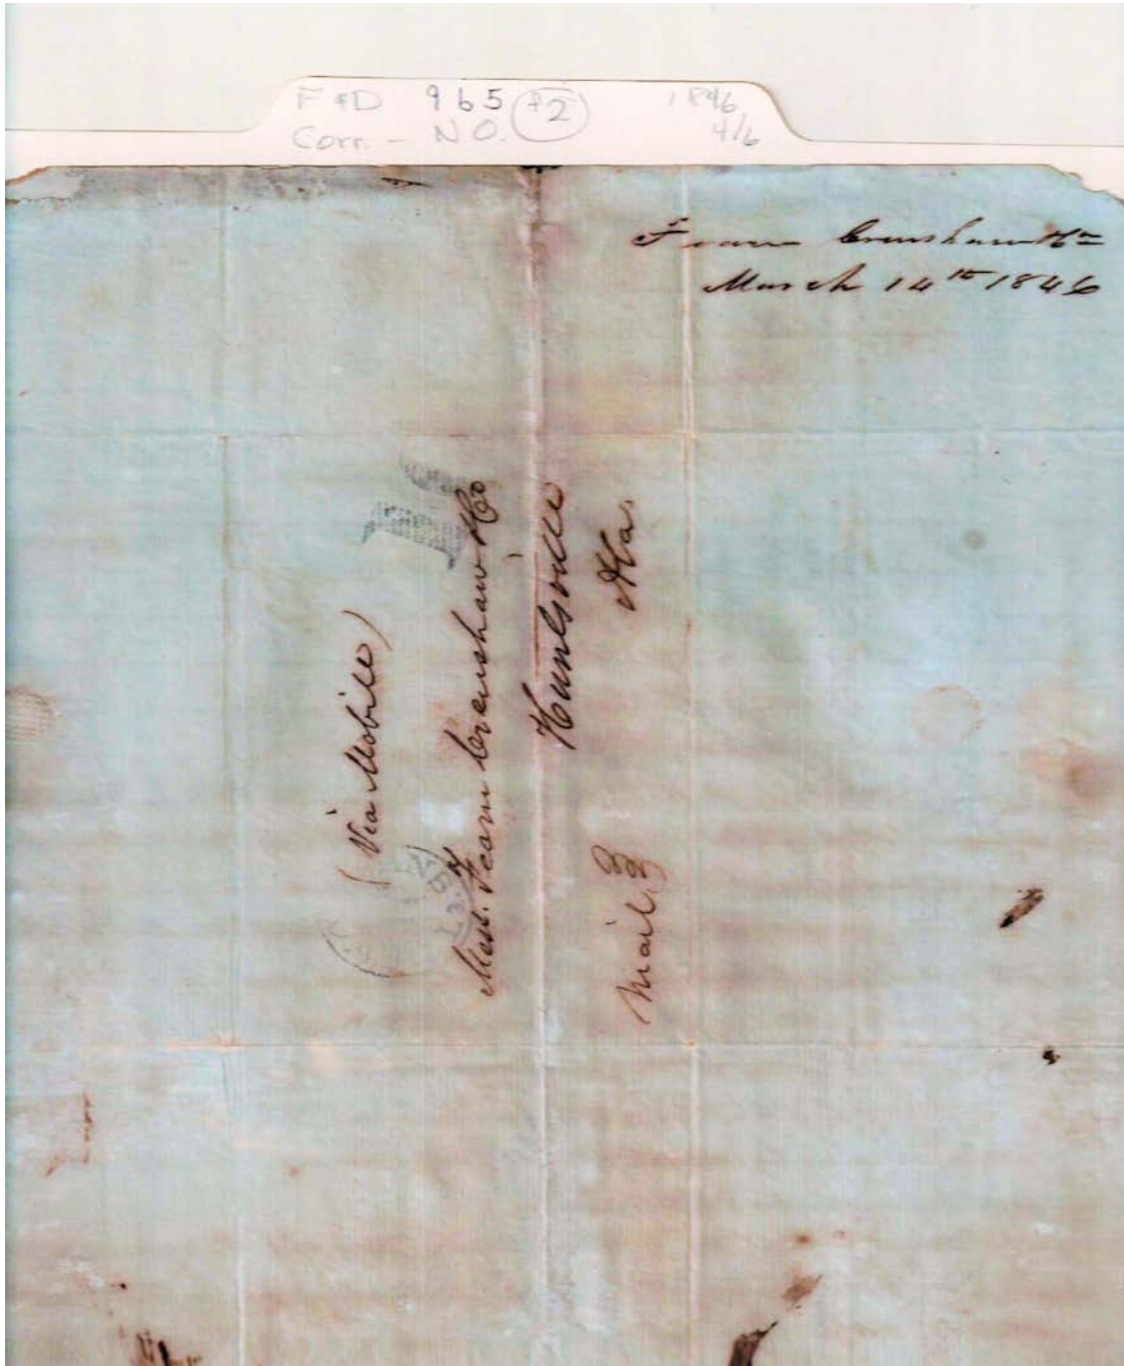 F & D 965 +2 1846
Corr. - N O. 4/6
Fearn Crenshaw & Co
March 14th 1846
10
(Via Mobile)
Mess. Fearn Crenshaw & Co
Huntsville
Ala.
Mail